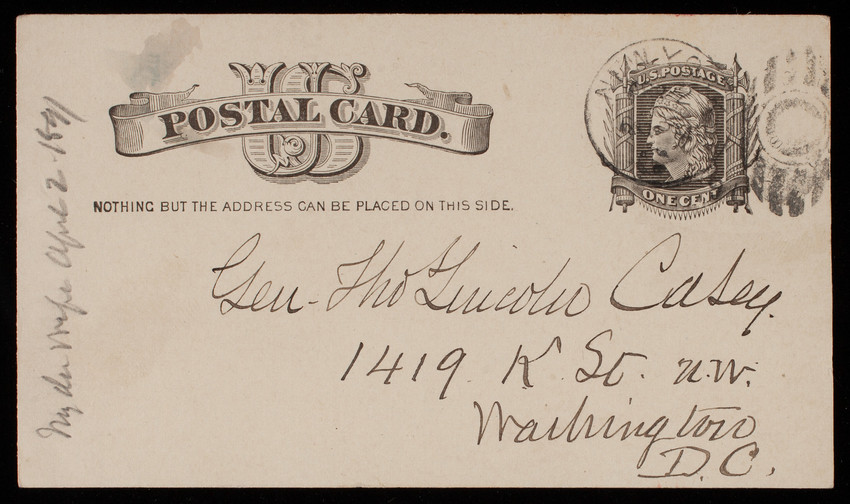 US
POSTAL CARD.
NOTHING BUT THE ADDRESS CAN BE PLACED ON THIS SIDE.
U.S. POSTAGE
ONE CENT
Gen. Tho Lincoln Casey.
1419 K St. N.W.
Washington
D.C.
April 2 - 1891